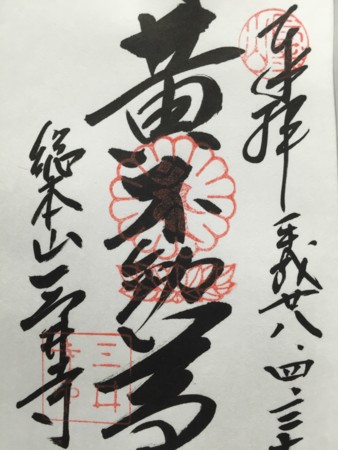 奉拝
平成廿八.四.三十
黄不動尊
總本山三井寺
三井